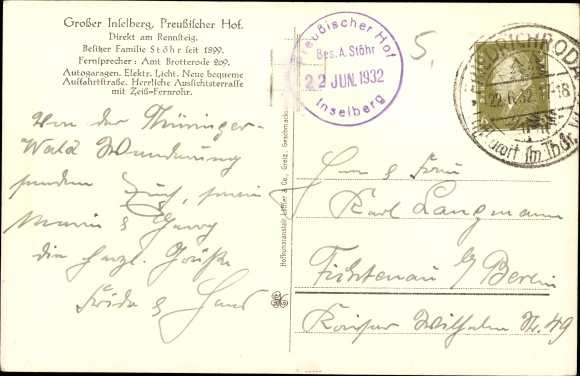 Großer Inselberg, Preußischer Hof.
Direkt am Rennsteig.
Besitzer Familie Stöhr seit 1899.
Fernsprecher: Amt Brotterode 209.
Autogaragen. Elektr. Licht. Neue bequeme
Auffahrtstraße. Herrliche Aussichtsterrasse
mit Zeiß-Fernrohr.
Preußischer Hof
Bes. A. Stöhr
22 JUN. 1932
Inselberg
5.
FRIEDRICHRODA
22.6.32 -18
Kurort im Thür. W
Von der Thüringer-
Wald Wanderung
senden Euch,
die herzl. Grüße
Frida & Hans
Hofkunstanstalt Löffler & Co., Greiz.
Herrn & Frau
Karl Langmann
Fichtenau b/ Berlin
Kaiser Wilhelm Str. 49